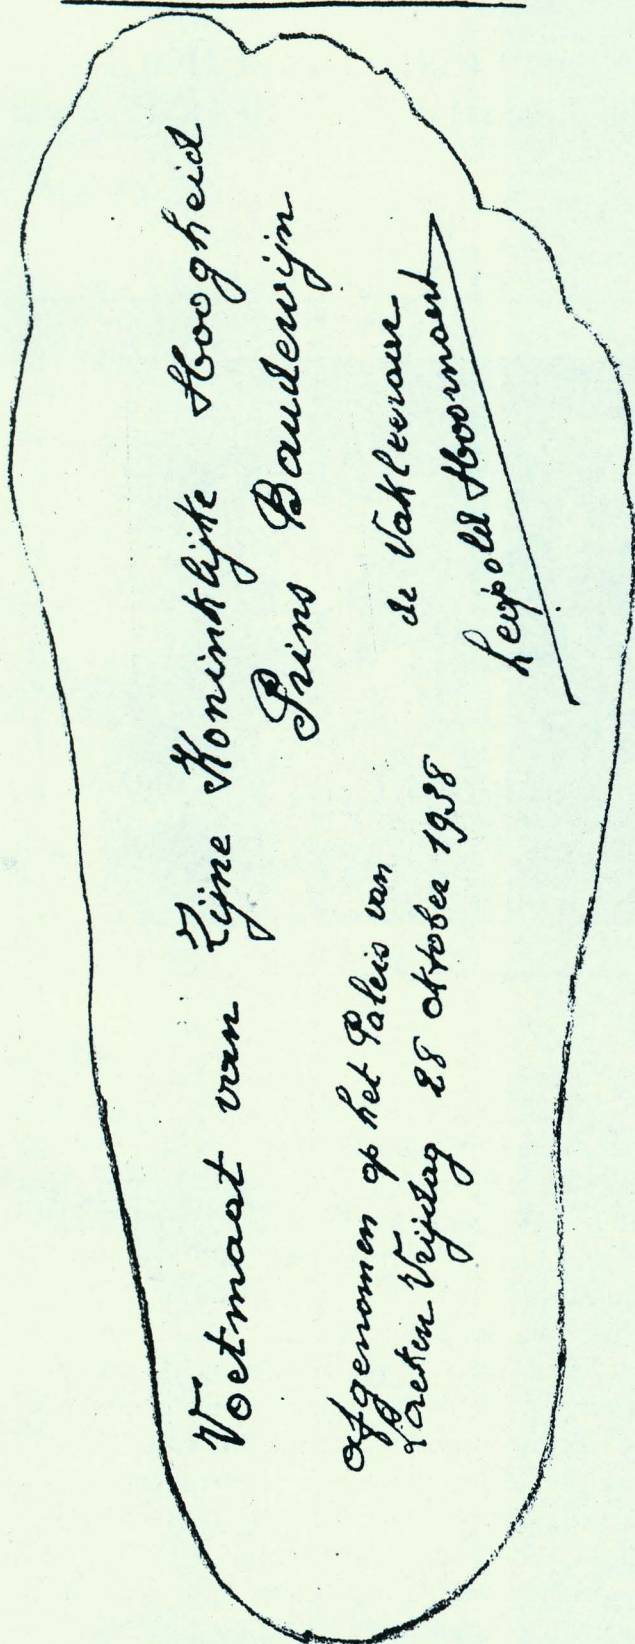 Voetmaat van Zijne Koninklijke Hoogheid
Prins Boudewijn
afgenomen op het Paleis van
Laeken Vrijdag 28 oktober 1938
de Vakleeraar
Leopold Hoornaert